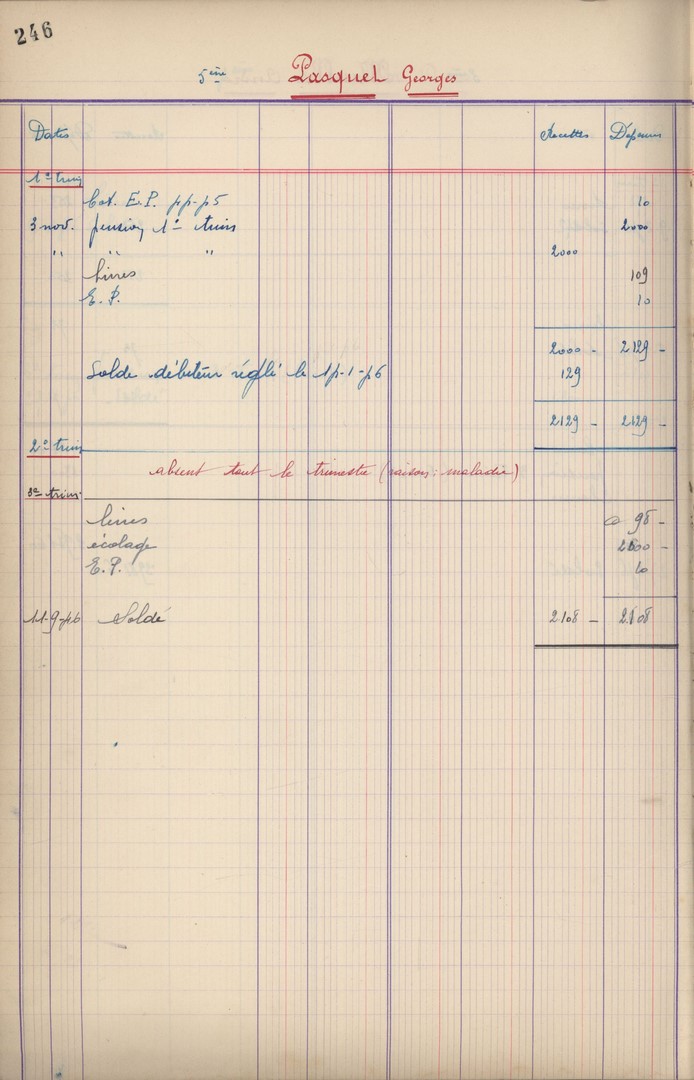 246
5ème Pasquet Georges
Dates Recettes Dépenses
1er trim
Cot. E.P. 44-45 10
3 nov. pension 1er trim 2000
" " " 2000
livres 109
E.P. 10
2000 - 2129 -
Solde débiteur réglé le 14-1-46 129
2129 - 2129 -
2e trim
absent tout le trimestre (raison : maladie)
3e trim.
livres 98 -
écolage 2000 -
E.P. 10
11-9-46 Soldé 2108 - 2108